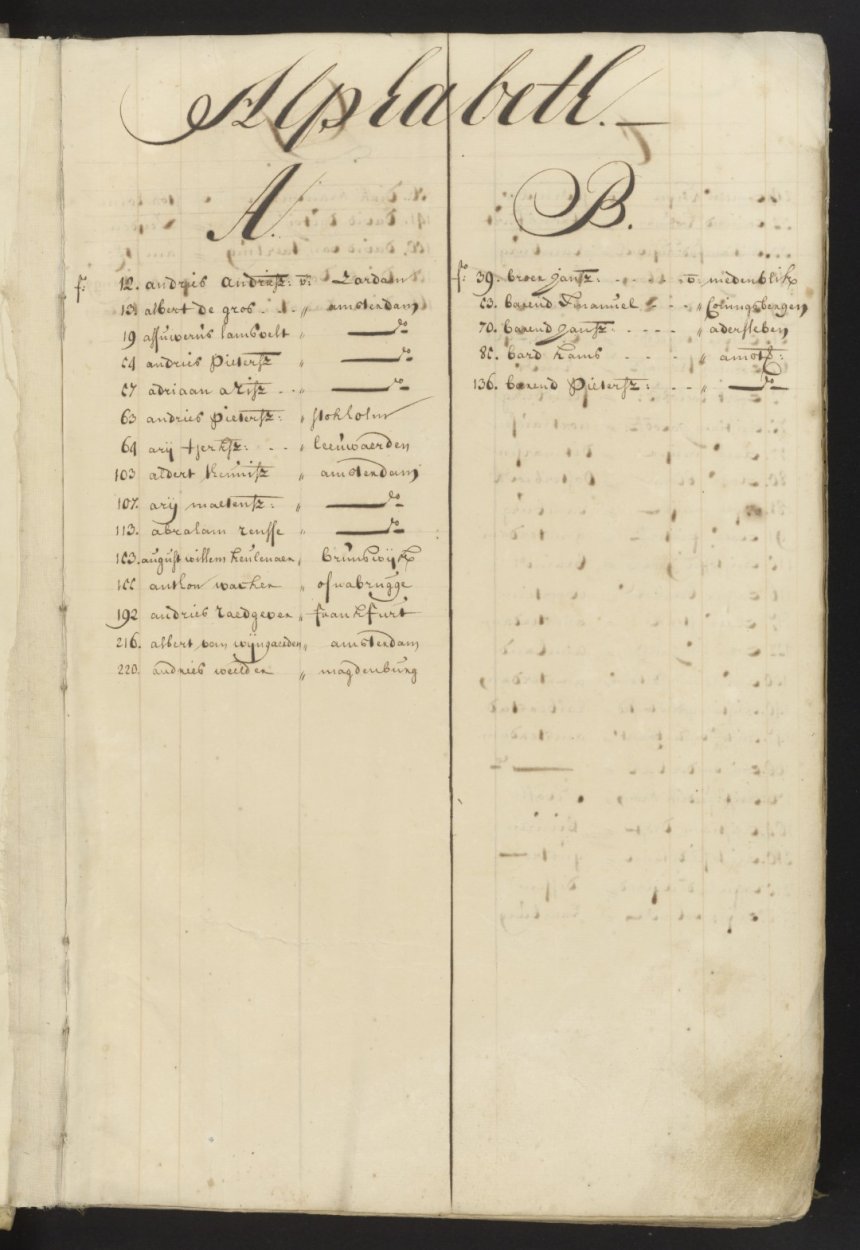 Alphabeth.
A.
f: 12. andries Andriesz: v: Zardam
15. albert de gros - - " amsterdam
19 assuwerus lamsvelt " — do
54 andries Pietersz " — do
57 adriaan arisz - - " — do
63 andries Pietersz: " stokholm
64 arij tjerksz: - - " leeuwaerden
103 aldert teunisz " amsterdam
107. arij maetensz: " — do
113. abraham rensse " — do
153. august willem keulenaer, brunswijk
155 anthon wacker " osnabrugge
192 andries raedgever " frankfurt
216. albert van wijngaerden " amsterdam
220. andries weelder " magdenburg
B.
f: 39. broer jansz: - - - v: medenblik
53. barend Emanuel - - "
70. barend jansz: - - - - " adersleben
85. bard hams - - - " amst:
136. barend Pietersz: - - " — do